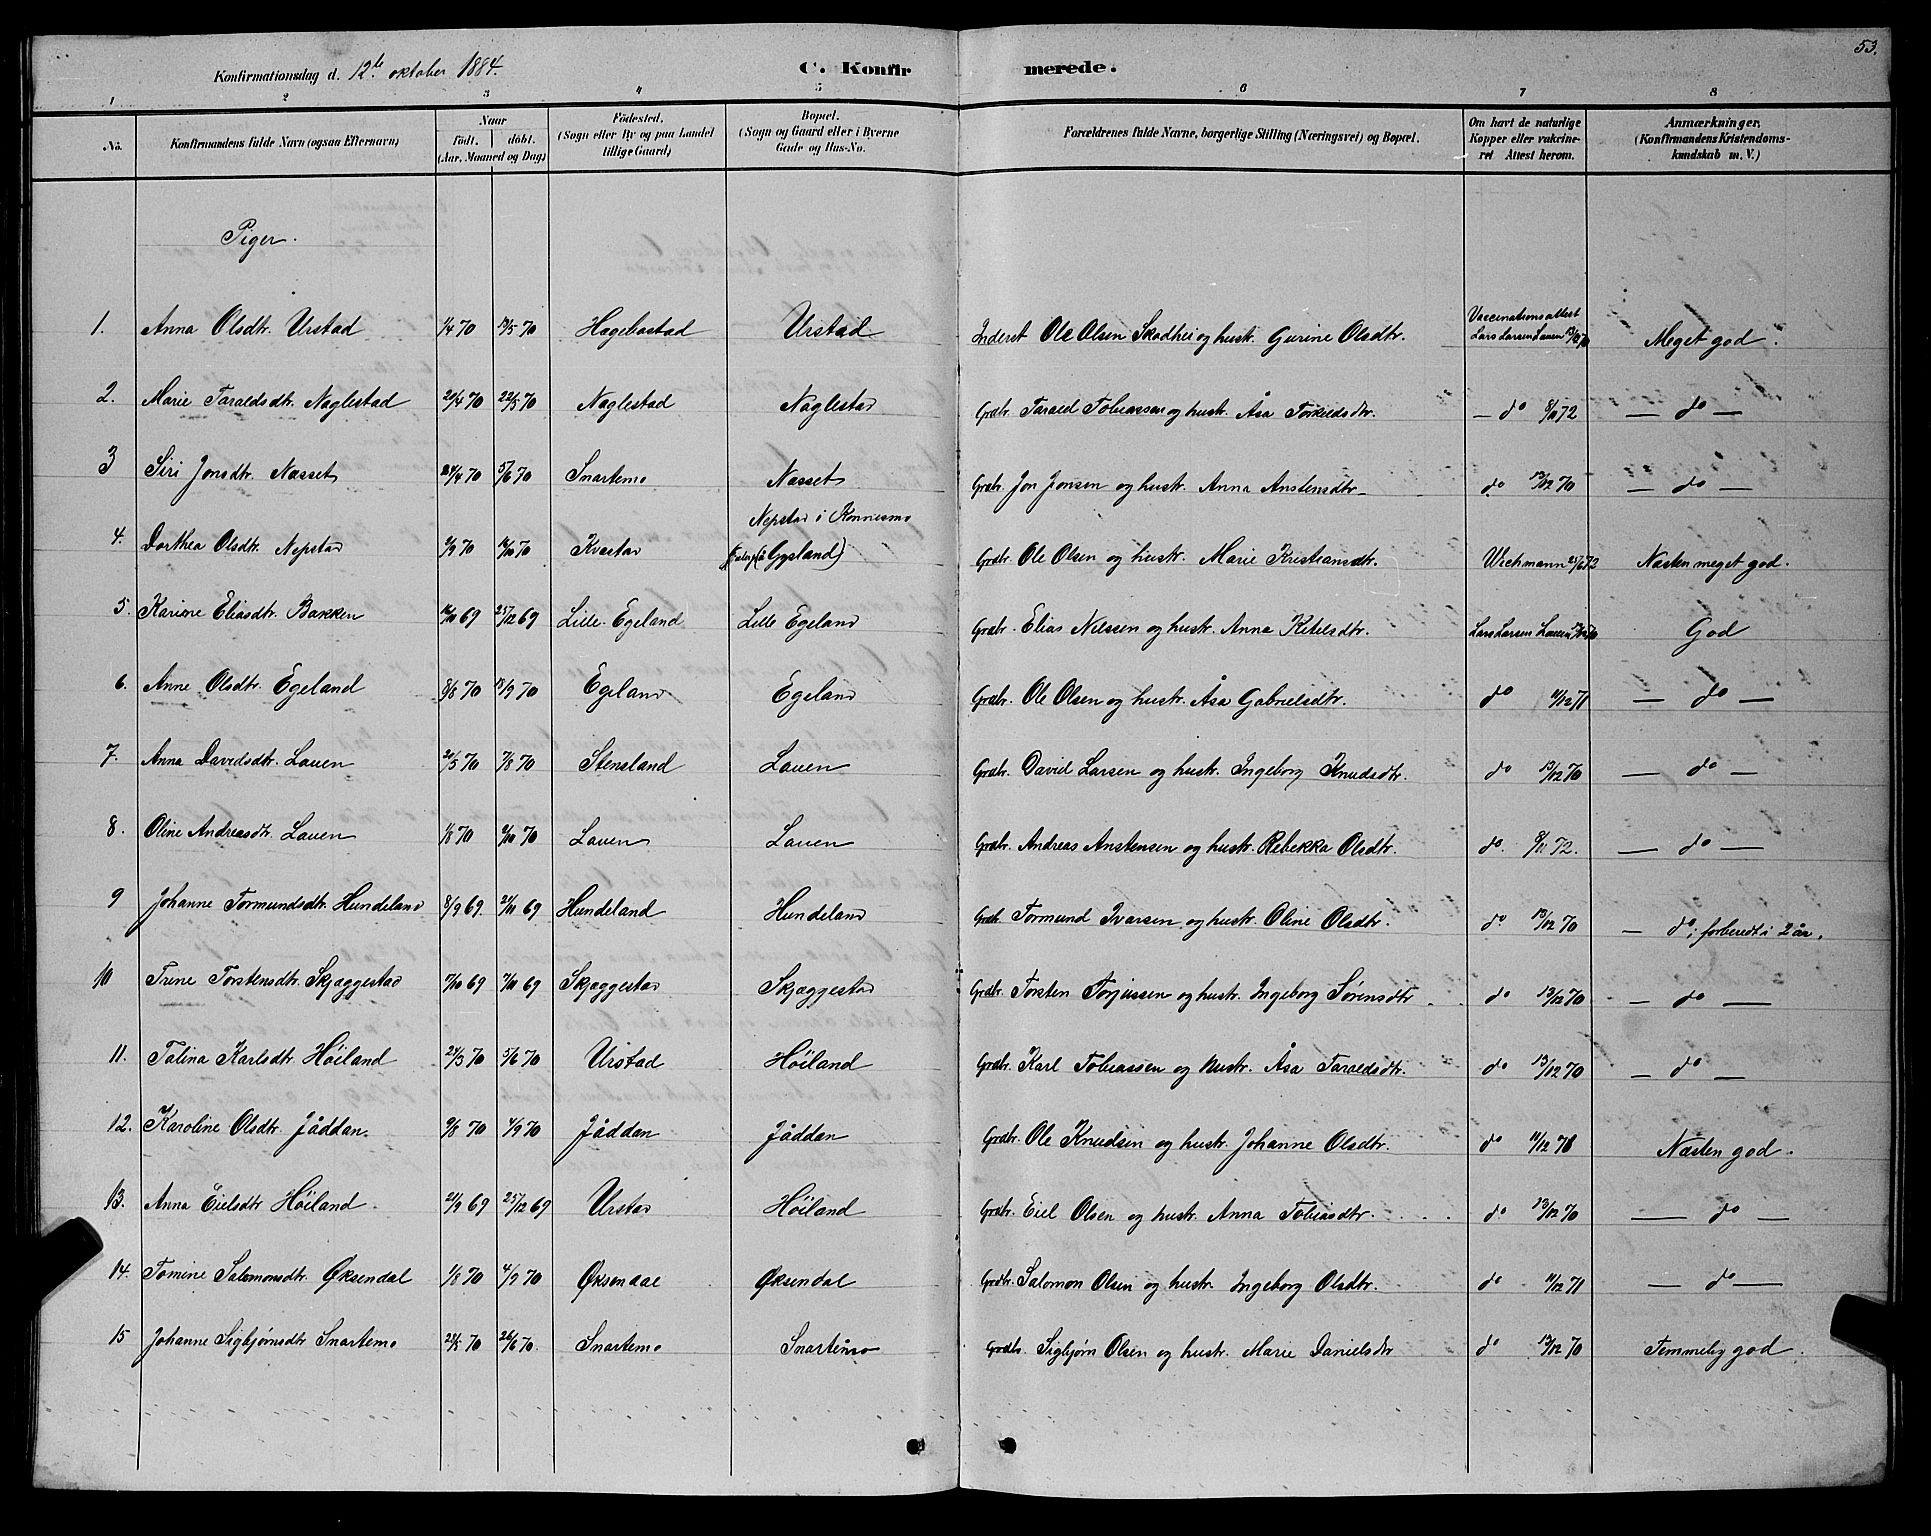 53.
Konfirmationsdag d. 12te oktober 1884.
C. Konfirmerede.
1 2 3 4 5 6 7 8
No. Konfirmandens fulde Navn (ogsaa Efternavn) Naar födt. döbt. (Aar, Maaned og Dag) Födested. (Sogn eller By og paa Landet tillige Gaard) Bopæl. (Sogn og Gaard eller i Byerne Gade og Hus-No. Forældrenes fulde Navne, borgerlige Stilling (Næringsvei) og Bopæl. Om havt de naturlige Kopper eller vakcineret Attest herom. Anmærkninger, (Konfirmandens Kristendomskundskab m. V.)
Piger.
1. Anna Olsdtr. Urstad 1/4 70 /5 70 Hægebostad Urstad Inderst Ole Olsen Skodhei og hustr. Gurine Olsdtr. Vaccinationsattest Lars Larsen Lauen 13/12 70 Meget god.
2. Marie Taraldsdtr. Naglestad 20/4 70 22/5 70 Naglestad Naglestad Grdbr. Tarald Tobiassen og hustr. Åsa Torkildsdtr. — do 8/11 72 — do —
3 Siri Jonsdtr. Nasset 24/4 70 5/6 70 Snartemo Nasset Grdbr. Jon Jonsen og hustr. Anna Anstensdtr. do 13/12 70 — do —
4. Dorthea Olsdtr. Nepstad /9 70 /10 70 Kvastad Nepstad i Konnesmo ( Gysland) Grdbr. Ole Olsen og hustr. Marie Kristiansdtr. Wichmann 72 Næsten meget god.
5. Karine Eliasdtr. Bakken /11 69 25/12 69 Lille Egeland Lille Egeland Grdbr. Elias Nilssen og hustr. Anna Ketelsdtr. Lars Larsen Lauen 13/12 70 God
6. Anne Olsdtr. Egeland 8/8 70 18/9 70 Egeland Egeland Grdbr. Ole Olsen og hustr. Åsa Gabrielsdtr. do 11/12 71 — do —
7. Anna Davidsdtr. Lauen 20/5 70 7/8 70 Stensland Lauen Grdbr. David Larsen og hustr. Ingeborg Knudsdtr. do 13/12 70 — do —
8. Oline Andreasdtr. Lauen 1/8 70 /10 70 Lauen Lauen Grdbr. Andreas Anstensen og hustr. Rebekka Olsdtr. do. 8/11 72. — do —
9 Johanne Tormundsdtr. Hundeland 8/9 69. 21/11 69 Hundeland Hundeland Grdbr. Tormund Ivarsen og hustr. Oline Olsdtr. do 13/12 70 — do, forberedt i 2 år.
10 Trine Torstensdtr. Skjæggestad 7/10 69 7/11 69 Skjæggestad Skjæggestad Grdbr. Torsten Torjussen og hustr. Ingeborg Sørensdtr. do 13/12 70 — do —
11. Talina Karlsdtr. Høiland 24/3 70 5/6 70 Urstad Høiland Grdbr. Karl Tobiassen og hustr. Åsa Taraldsdtr. do 13/12 70 — do —
12. Karoline Olsdtr. Jåddan. 9/8 70 4/9 70 Jåddan Jåddan Grdbr. Ole Knudsen og hustr. Johanne Olsdtr. do 11/12 71 Næsten god.
13. Anna Eielsdtr Høiland. 21/9 69 25/12 69 Urstad Høiland Grdbr. Eiel Olsen og hustr. Anna Tobiasdtr. do 13/12 70 — do —
14. Tomine Salomonsdtr. Øksendal 1/8 70 4/9 70 Øksendal Øksendal Grdbr. Salomon Olsen og hustr. Ingeborg Olsdtr. do 11/12 71 — do —
15 Johanne Sigbjørnsdtr Snartemo 23/5 70 26/6 70. Snartemo Snartemo Grdbr. Sigbjørn Olsen og hustr. Marie Danielsdtr do 13/12 70 Temmelig god.